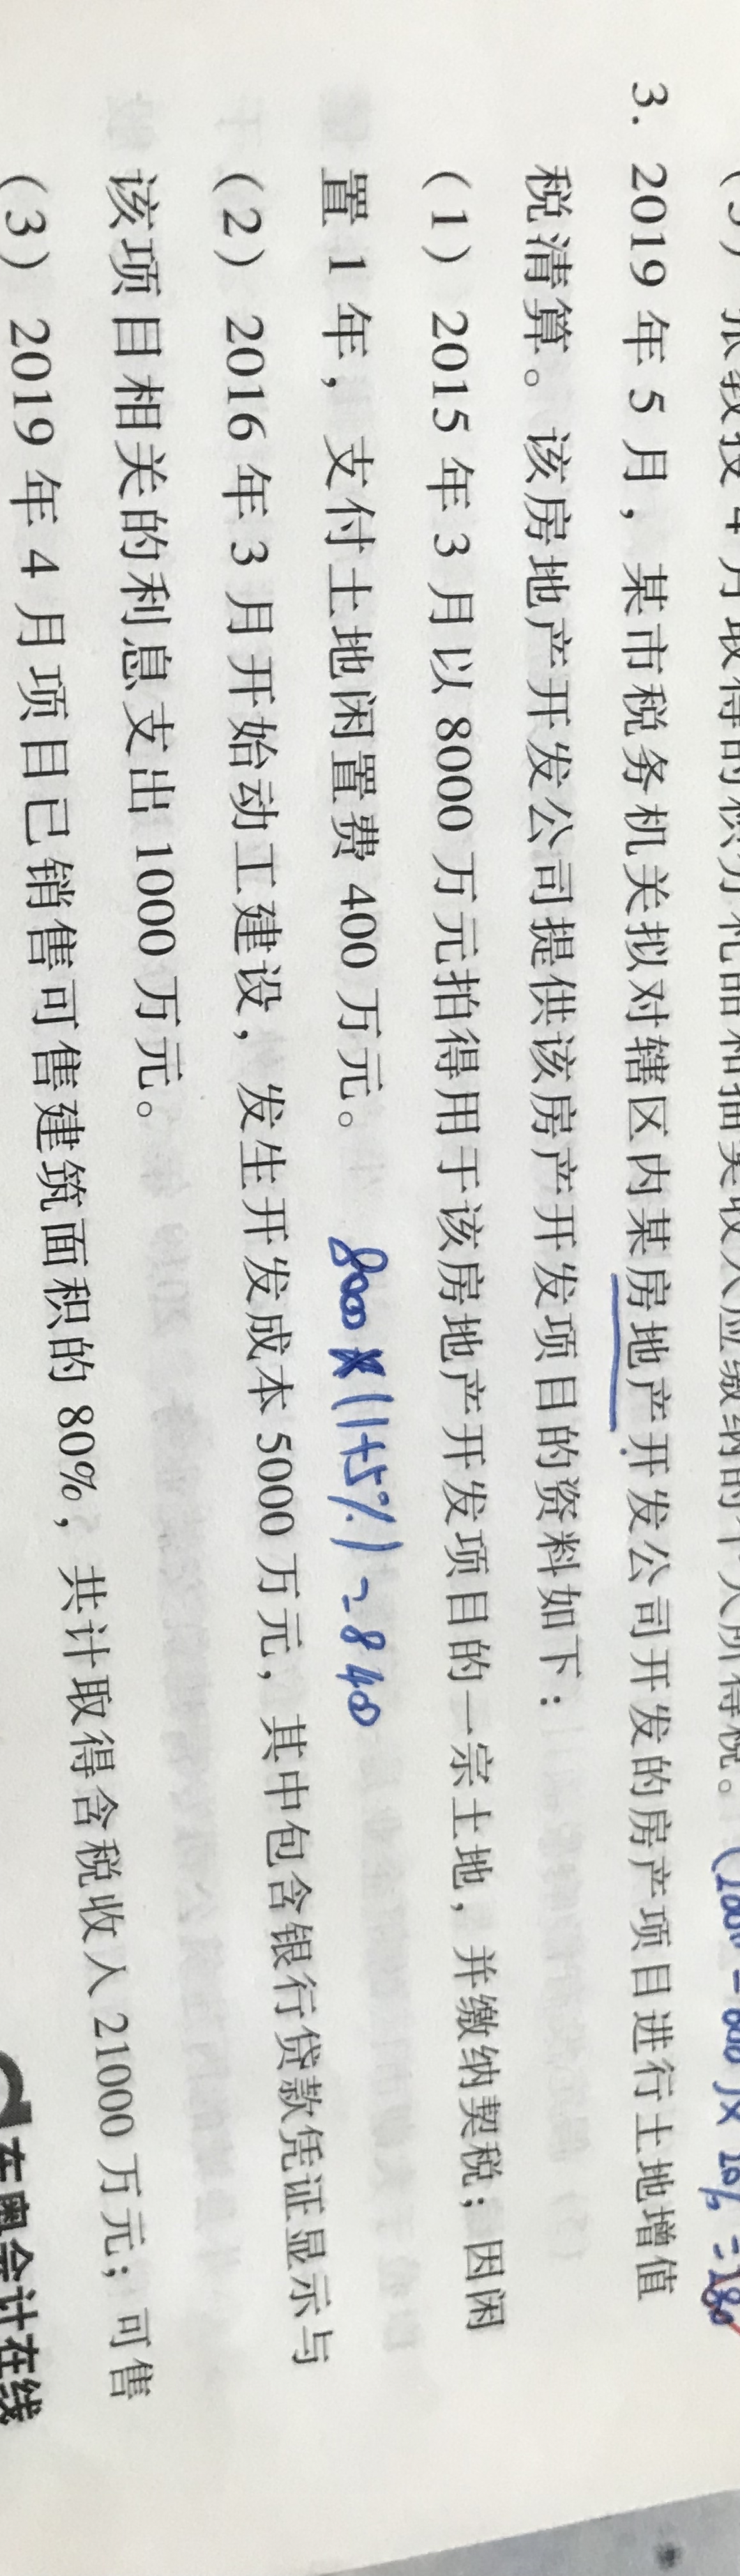 张教授4月取得的积分礼品和抽奖收入应缴纳的个人所得税。
3. 2019年5月，某市税务机关拟对辖区内某房地产开发公司开发的房产项目进行土地增值
税清算。该房地产开发公司提供该房产开发项目的资料如下：
（1）2015年3月以8000万元拍得用于该房地产开发项目的一宗土地，并缴纳契税；因闲
置1年，支付土地闲置费400万元。
8000×(1+5%)=840
（2）2016年3月开始动工建设，发生开发成本5000万元，其中包含银行贷款凭证显示与
该项目相关的利息支出1000万元。
（3）2019年4月项目已销售可售建筑面积的80%，共计取得含税收入21000万元；可售
会计在线